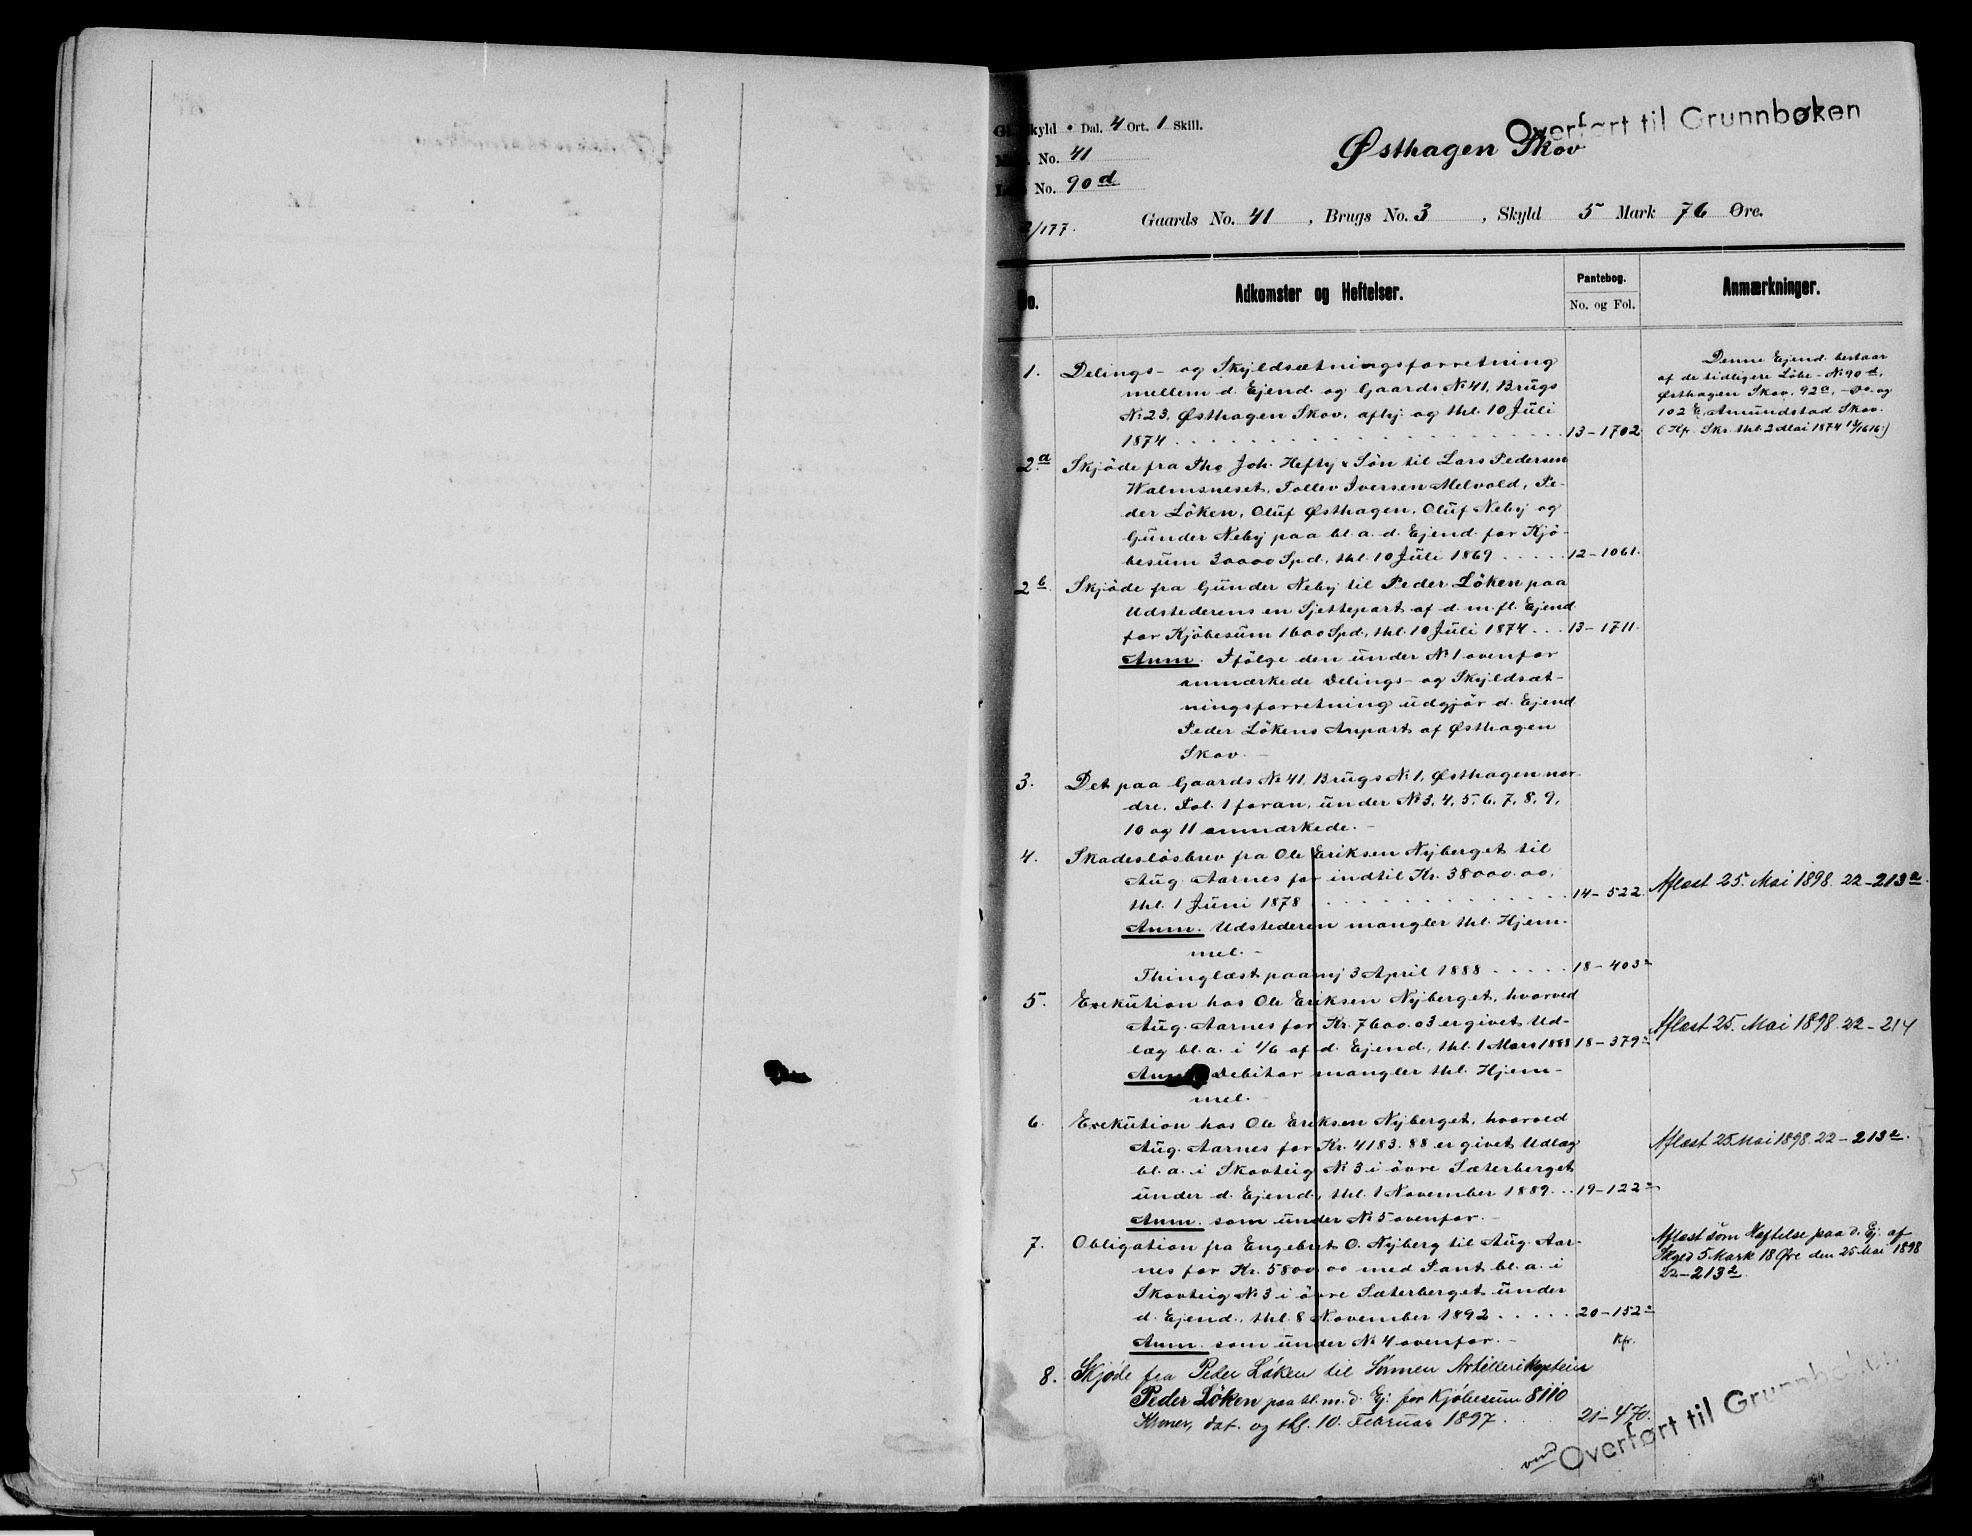 Overført til Grunnbøken
Skyld • Dal. 4 Ort. 1 Skill.
No. 41
No. 90 d
Østhagen Skov
/177.
Gaards No. 41, Brugs No. 3, Skyld 5 Mark 76 Øre.
No.
Adkomster og Heftelser.
Pantebog.
No. og Fol.
Anmærkninger.
1. Delings- og Skyldsætningsforretning
mellem d. Ejend. og Gaards No 41, Brugs
No 23, Østhagen Skov, afhj. og thl. 10 Juli
1874 . . . . . 13-1702
Denne Ejend. bestaar
af de tidligere Løbe-No 90 d,
Østhagen Skov, 92 a, -do. og
102 E, Amundstad Skov.
(Hfr. Skr. thl. 2 Mai 1874 14/1616.)
2 a Skjøde fra Tho. Joh. Hefty & Søn til Lars Pedersen
Walmsneset, Tollev Iversen Melvold, Pe-
der Løken, Oluf Østhagen, Oluf Neby og
Gunder Neby paa bl. a. d. Ejend. for Kjø-
besum 30000 Spd., thl. 10 Juli 1869 . . . . . 12-1061.
2 b Skjøde fra Gunder Neby til Peder Løken paa
Udstederens en Sjettepart af d. m. fl. Ejend.
for Kjøbesum 1600 Spd., thl. 10 Juli 1874 . . . 13-1711.
Anm. Ifølge den under No 1 ovenfor
anmærkede Delings- og Skyldsæt-
ningsforretning udgjør d. Ejend.
Peder Løkens Anpart af Østhagen
Skov. -
3. Det paa Gaards No 41, Brugs No 1, Østhagen nor-
dre, Fol. 1 foran, under No 3, 4, 5, 6, 7, 8, 9,
10 og 11 anmærkede. -
4. Skadesløsbrev fra Ole Eriksen Nyberget til
Aug. Aarnes for indtil Kr. 38000.00,
thl. 1 Juni 1878 . . . . . 14-522
Aflæst 25. Mai 1898. 22-213 a.
Anm. Udstederen mangler thl. Hjem-
mel. -
Thinglæst paany 3 April 1888 . . . . . 18-403 a
5. Exekution hos Ole Eriksen Nyberget, hvorved
Aug. Aarnes for Kr. 7600.03 er givet Ud-
læg bl. a. i 1/6 af d. Ejend., thl. 1 Mars 1888 18-379 a
Aflæst 25. Mai 1898. 22-214
Anm. Debitor mangler thl. Hjem-
mel. -
6. Exekution hos Ole Eriksen Nyberget, hvorved
Aug. Aarnes for Kr. 4183.88 er givet Udlæg
bl. a. i Skovteig No 3 i øvre Sæterberget
under d. Ejend., thl. 1 November 1889 . . 19-122 a
Aflæst 25 Mai 1898. 22-213 a.
Anm. som under No 5 ovenfor. -
7. Obligation fra Engebret O. Nyberg til Aug. Aar-
nes for Kr. 5800.00 med Pant bl. a. i
Skovteig No 3 i øvre Sæterberget under
d. Ejend., thl. 8 November 1892 . . . . . 20-152 a
Anm. som under No 4 ovenfor. - Kfr.
Aflæst som Hæftelse paa d. Ej. af
Skyld 5 Mark 18 Øre den 25 Mai 1898
22-213 a.
8. Skjøde fra Peder Løken til Sønnen Artillerikaptein
Peder Løken paa bl. m. d. Ej. for Kjøbesum 8110
Kroner, dat. og thl. 10. Februar 1897. 21-470.
vend
Overført til Grunnboken